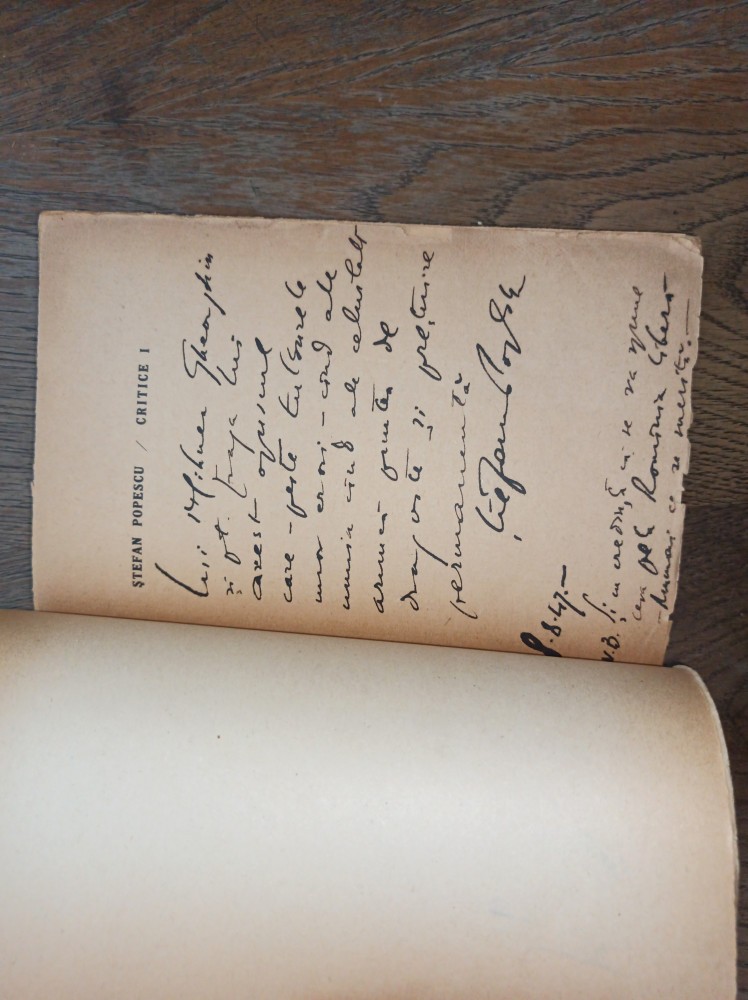 ŞTEFAN POPESCU / CRITICE I
Lui Mihnea Gheorghiu
şi pt. truda lui
acest opuscul
care - peste tulburele
unor erori - când ale
unuia când ale celuilalt
aruncă puntea de
dragoste şi preţuire
permanentă
Ştefan Popescu
8.8.47.-
N.B. Şi cu credinţă că se va spune
ceva dela România liberă
- Numai ce se merită. -